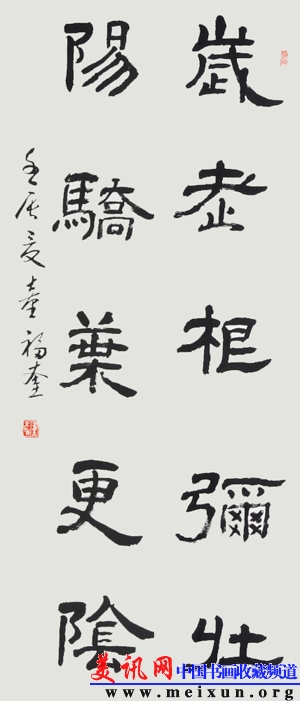 歲老根彌壯
陽驕葉更陰
壬辰夏福奎
美讯网 中国书画收藏频道
www.meixun.org